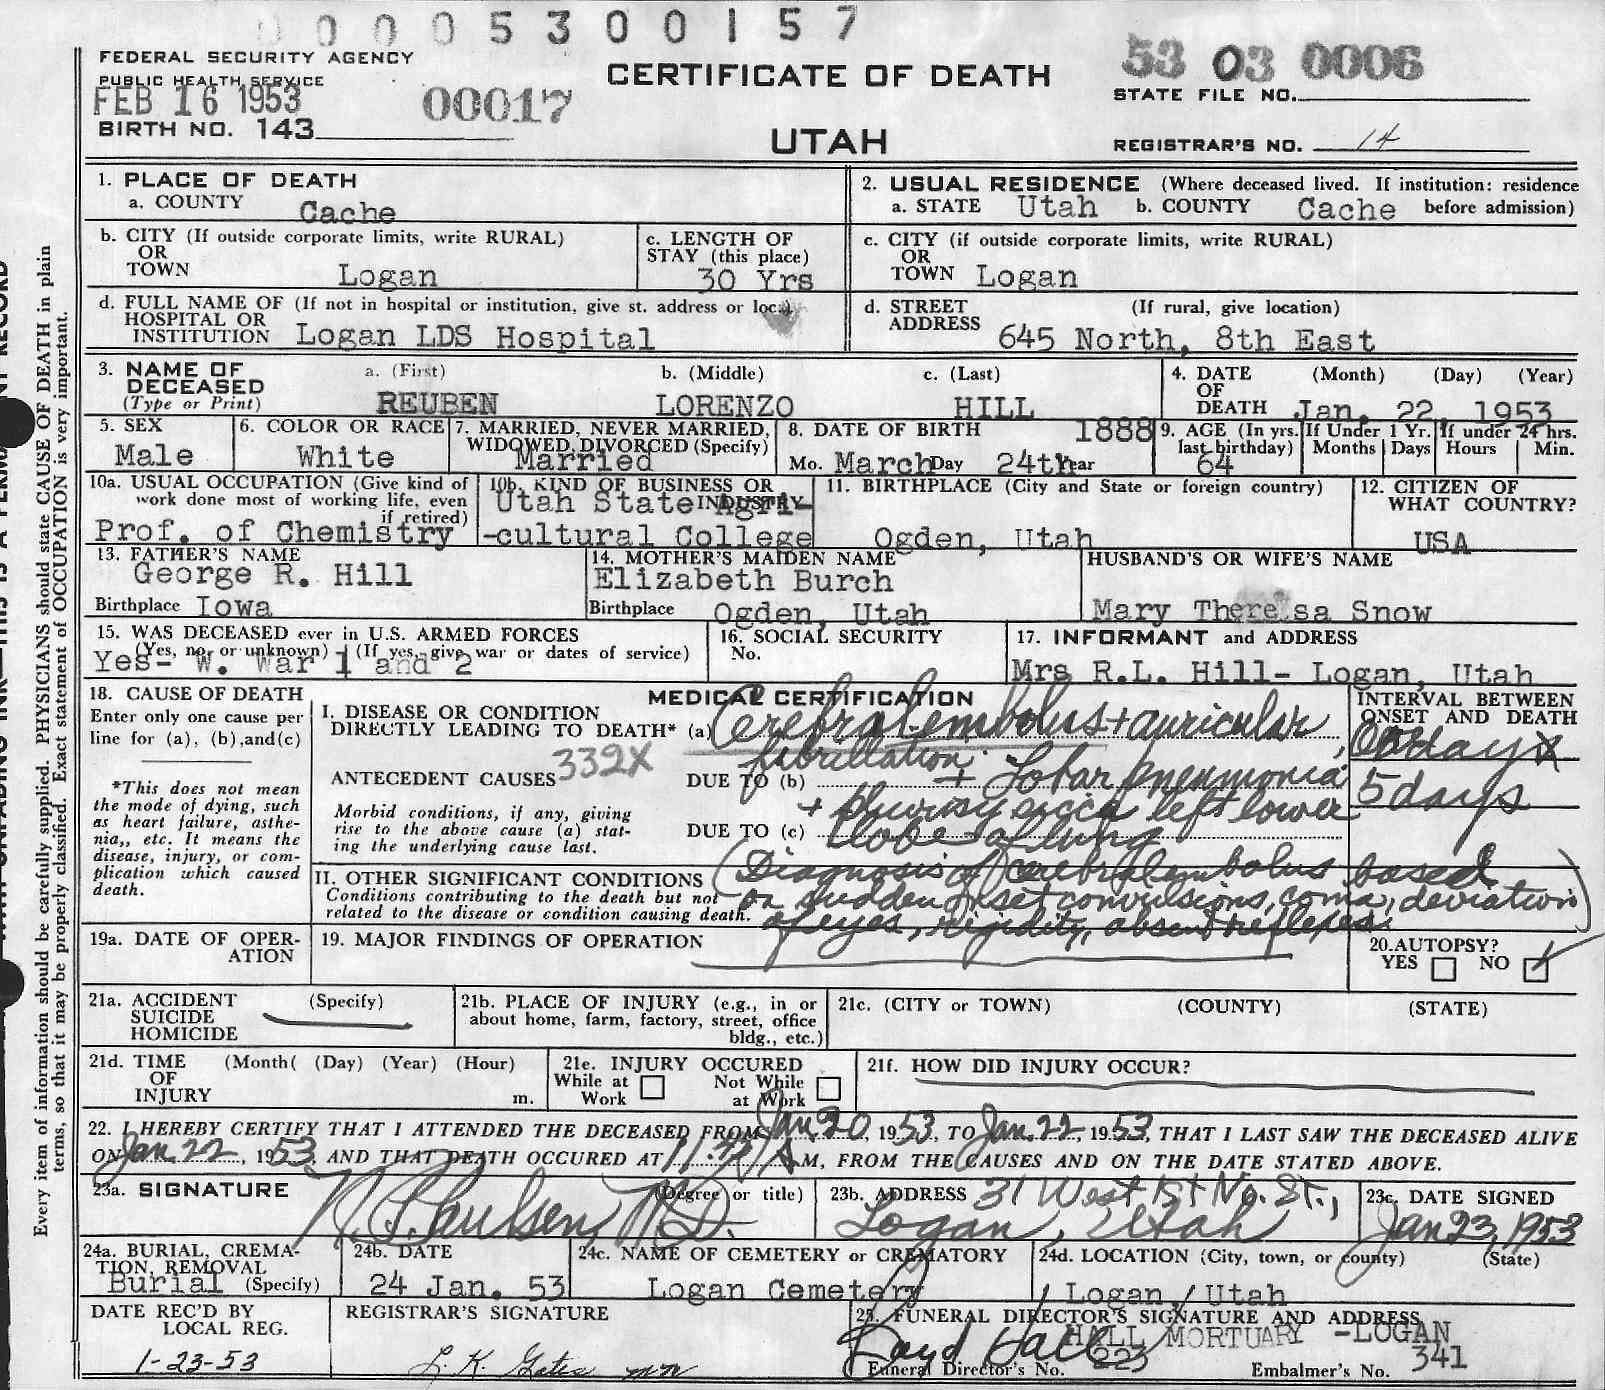 0 0 0 5 3 0 0 1 5 7
FEDERAL SECURITY AGENCY
PUBLIC HEALTH SERVICE
FEB 16 1953
00017
BIRTH NO. 143
CERTIFICATE OF DEATH
UTAH
53 03 0006
STATE FILE NO.
REGISTRAR'S NO. 14
1. PLACE OF DEATH
a. COUNTY Cache
2. USUAL RESIDENCE (Where deceased lived. If institution: residence
a. STATE Utah b. COUNTY Cache before admission)
b. CITY (If outside corporate limits, write RURAL)
OR
TOWN Logan
c. LENGTH OF
STAY (this place)
30 Yrs
c. CITY (if outside corporate limits, write RURAL)
OR
TOWN Logan
d. FULL NAME OF (If not in hospital or institution, give st. address or loc.)
HOSPITAL OR
INSTITUTION Logan LDS Hospital
d. STREET (If rural, give location)
ADDRESS 645 North, 8th East
3. NAME OF
DECEASED
(Type or Print)
a. (First) b. (Middle) c. (Last)
REUBEN LORENZO HILL
4. DATE (Month) (Day) (Year)
OF
DEATH Jan. 22, 1953
5. SEX
Male
6. COLOR OR RACE
White
7. MARRIED, NEVER MARRIED,
WIDOWED, DIVORCED (Specify)
Married
8. DATE OF BIRTH 1888
Mo. March Day 24th Year
9. AGE (In yrs.
last birthday)
64
If Under 1 Yr.
Months Days
If under 24 hrs.
Hours Min.
10a. USUAL OCCUPATION (Give kind of
work done most of working life, even
if retired)
Prof. of Chemistry
10b. KIND OF BUSINESS OR
INDUSTRY
Utah State Agri-
-cultural College
11. BIRTHPLACE (City and State or foreign country)
Ogden, Utah
12. CITIZEN OF
WHAT COUNTRY?
USA
13. FATHER'S NAME
George R. Hill
Birthplace Iowa
14. MOTHER'S MAIDEN NAME
Elizabeth Burch
Birthplace Ogden, Utah
HUSBAND'S OR WIFE'S NAME
Mary Theresa Snow
15. WAS DECEASED ever in U.S. ARMED FORCES
(Yes, no, or unknown) (If yes, give war or dates of service)
Yes- W. War 1 and 2
16. SOCIAL SECURITY
No.
17. INFORMANT and ADDRESS
Mrs R.L. Hill- Logan, Utah
18. CAUSE OF DEATH
Enter only one cause per
line for (a), (b), and (c)
*This does not mean
the mode of dying, such
as heart failure, asthe-
nia,, etc. It means the
disease, injury, or com-
plication which caused
death.
MEDICAL CERTIFICATION
I. DISEASE OR CONDITION
DIRECTLY LEADING TO DEATH* (a) Cerebral embolus + auricular
fibrillation
ANTECEDENT CAUSES 332X
DUE TO (b) + Lobar pneumonia
Morbid conditions, if any, giving
rise to the above cause (a) stat-
ing the underlying cause last.
+ pleurisy sicca left lower
DUE TO (c) lobe of lung
INTERVAL BETWEEN
ONSET AND DEATH
5 days
II. OTHER SIGNIFICANT CONDITIONS
Conditions contributing to the death but not
related to the disease or condition causing death.
(Diagnosis of cerebral embolus based
on sudden onset convulsions, coma, deviation
of eyes, rigidity, absent reflexes.)
19a. DATE OF OPER-
ATION
19. MAJOR FINDINGS OF OPERATION
20. AUTOPSY?
YES NO ✓
21a. ACCIDENT (Specify)
SUICIDE
HOMICIDE
21b. PLACE OF INJURY (e.g., in or
about home, farm, factory, street, office
bldg., etc.)
21c. (CITY or TOWN) (COUNTY) (STATE)
21d. TIME (Month( (Day) (Year) (Hour)
OF
INJURY m.
21e. INJURY OCCURED
While at Not While
Work at Work
21f. HOW DID INJURY OCCUR?
22. I HEREBY CERTIFY THAT I ATTENDED THE DECEASED FROM Jan. 20, 1953, TO Jan. 22, 1953, THAT I LAST SAW THE DECEASED ALIVE
ON Jan. 22, 1953, AND THAT DEATH OCCURED AT A M, FROM THE CAUSES AND ON THE DATE STATED ABOVE.
23a. SIGNATURE (Degree or title)
Paulsen, M.D.
23b. ADDRESS 31 West 1st No. St.,
Logan, Utah
23c. DATE SIGNED
Jan 23, 1953
24a. BURIAL, CREMA-
TION, REMOVAL
Burial (Specify)
24b. DATE
24 Jan. 53
24c. NAME OF CEMETERY or CREMATORY
Logan Cemetery
24d. LOCATION (City, town, or county) (State)
Logan, Utah
DATE REC'D BY
LOCAL REG.
1-23-53
REGISTRAR'S SIGNATURE
25. FUNERAL DIRECTOR'S SIGNATURE AND ADDRESS
Boyd Hall HALL MORTUARY -LOGAN
Funeral Director's No. 223 Embalmer's No. 341
Every item of information should be carefully supplied. PHYSICIANS should state CAUSE OF DEATH in plain
terms, so that it may be properly classified. Exact statement of OCCUPATION is very important.